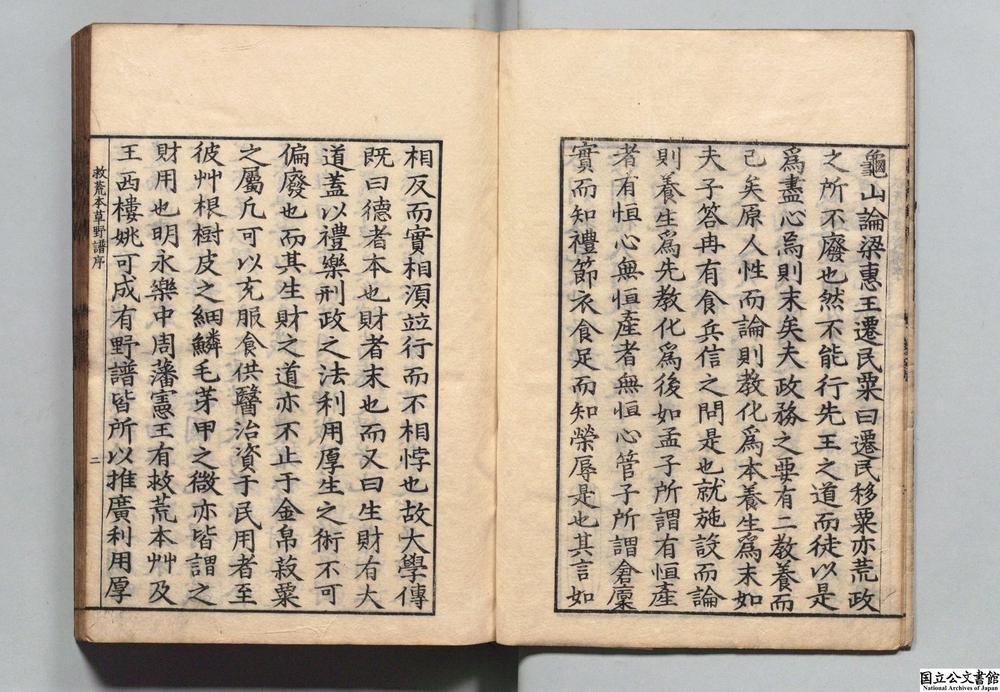 龜山論梁惠王遷民粟曰遷民移粟亦荒政
之所不廢也然不能行先王之道而徒以是
爲盡心焉則末矣夫政務之要有二教養而
已矣原人性而論則教化爲本養生爲末如
夫子答冉有食兵信之問是也就施設而論
則養生爲先教化爲後如孟子所謂有恒產
者有恒心無恒產者無恒心管子所謂倉廩
實而知禮節衣食足而知榮辱是也其言如
相反而實相須竝行而不相悖也故大學傳
既曰德者本也財者末也而又曰生財有大
道蓋以禮樂刑政之法利用厚生之術不可
偏廢也而其生財之道亦不止于金帛菽粟
之屬凡可以充服食供醫治資于民用者至
彼艸根樹皮之細鱗毛芽甲之微亦皆謂之
財用也明永樂中周藩憲王有救荒本艸及
王西樓姚可成有野譜皆所以推廣利用厚
救荒本草野譜序
二
国立公文書館
National Archives of Japan